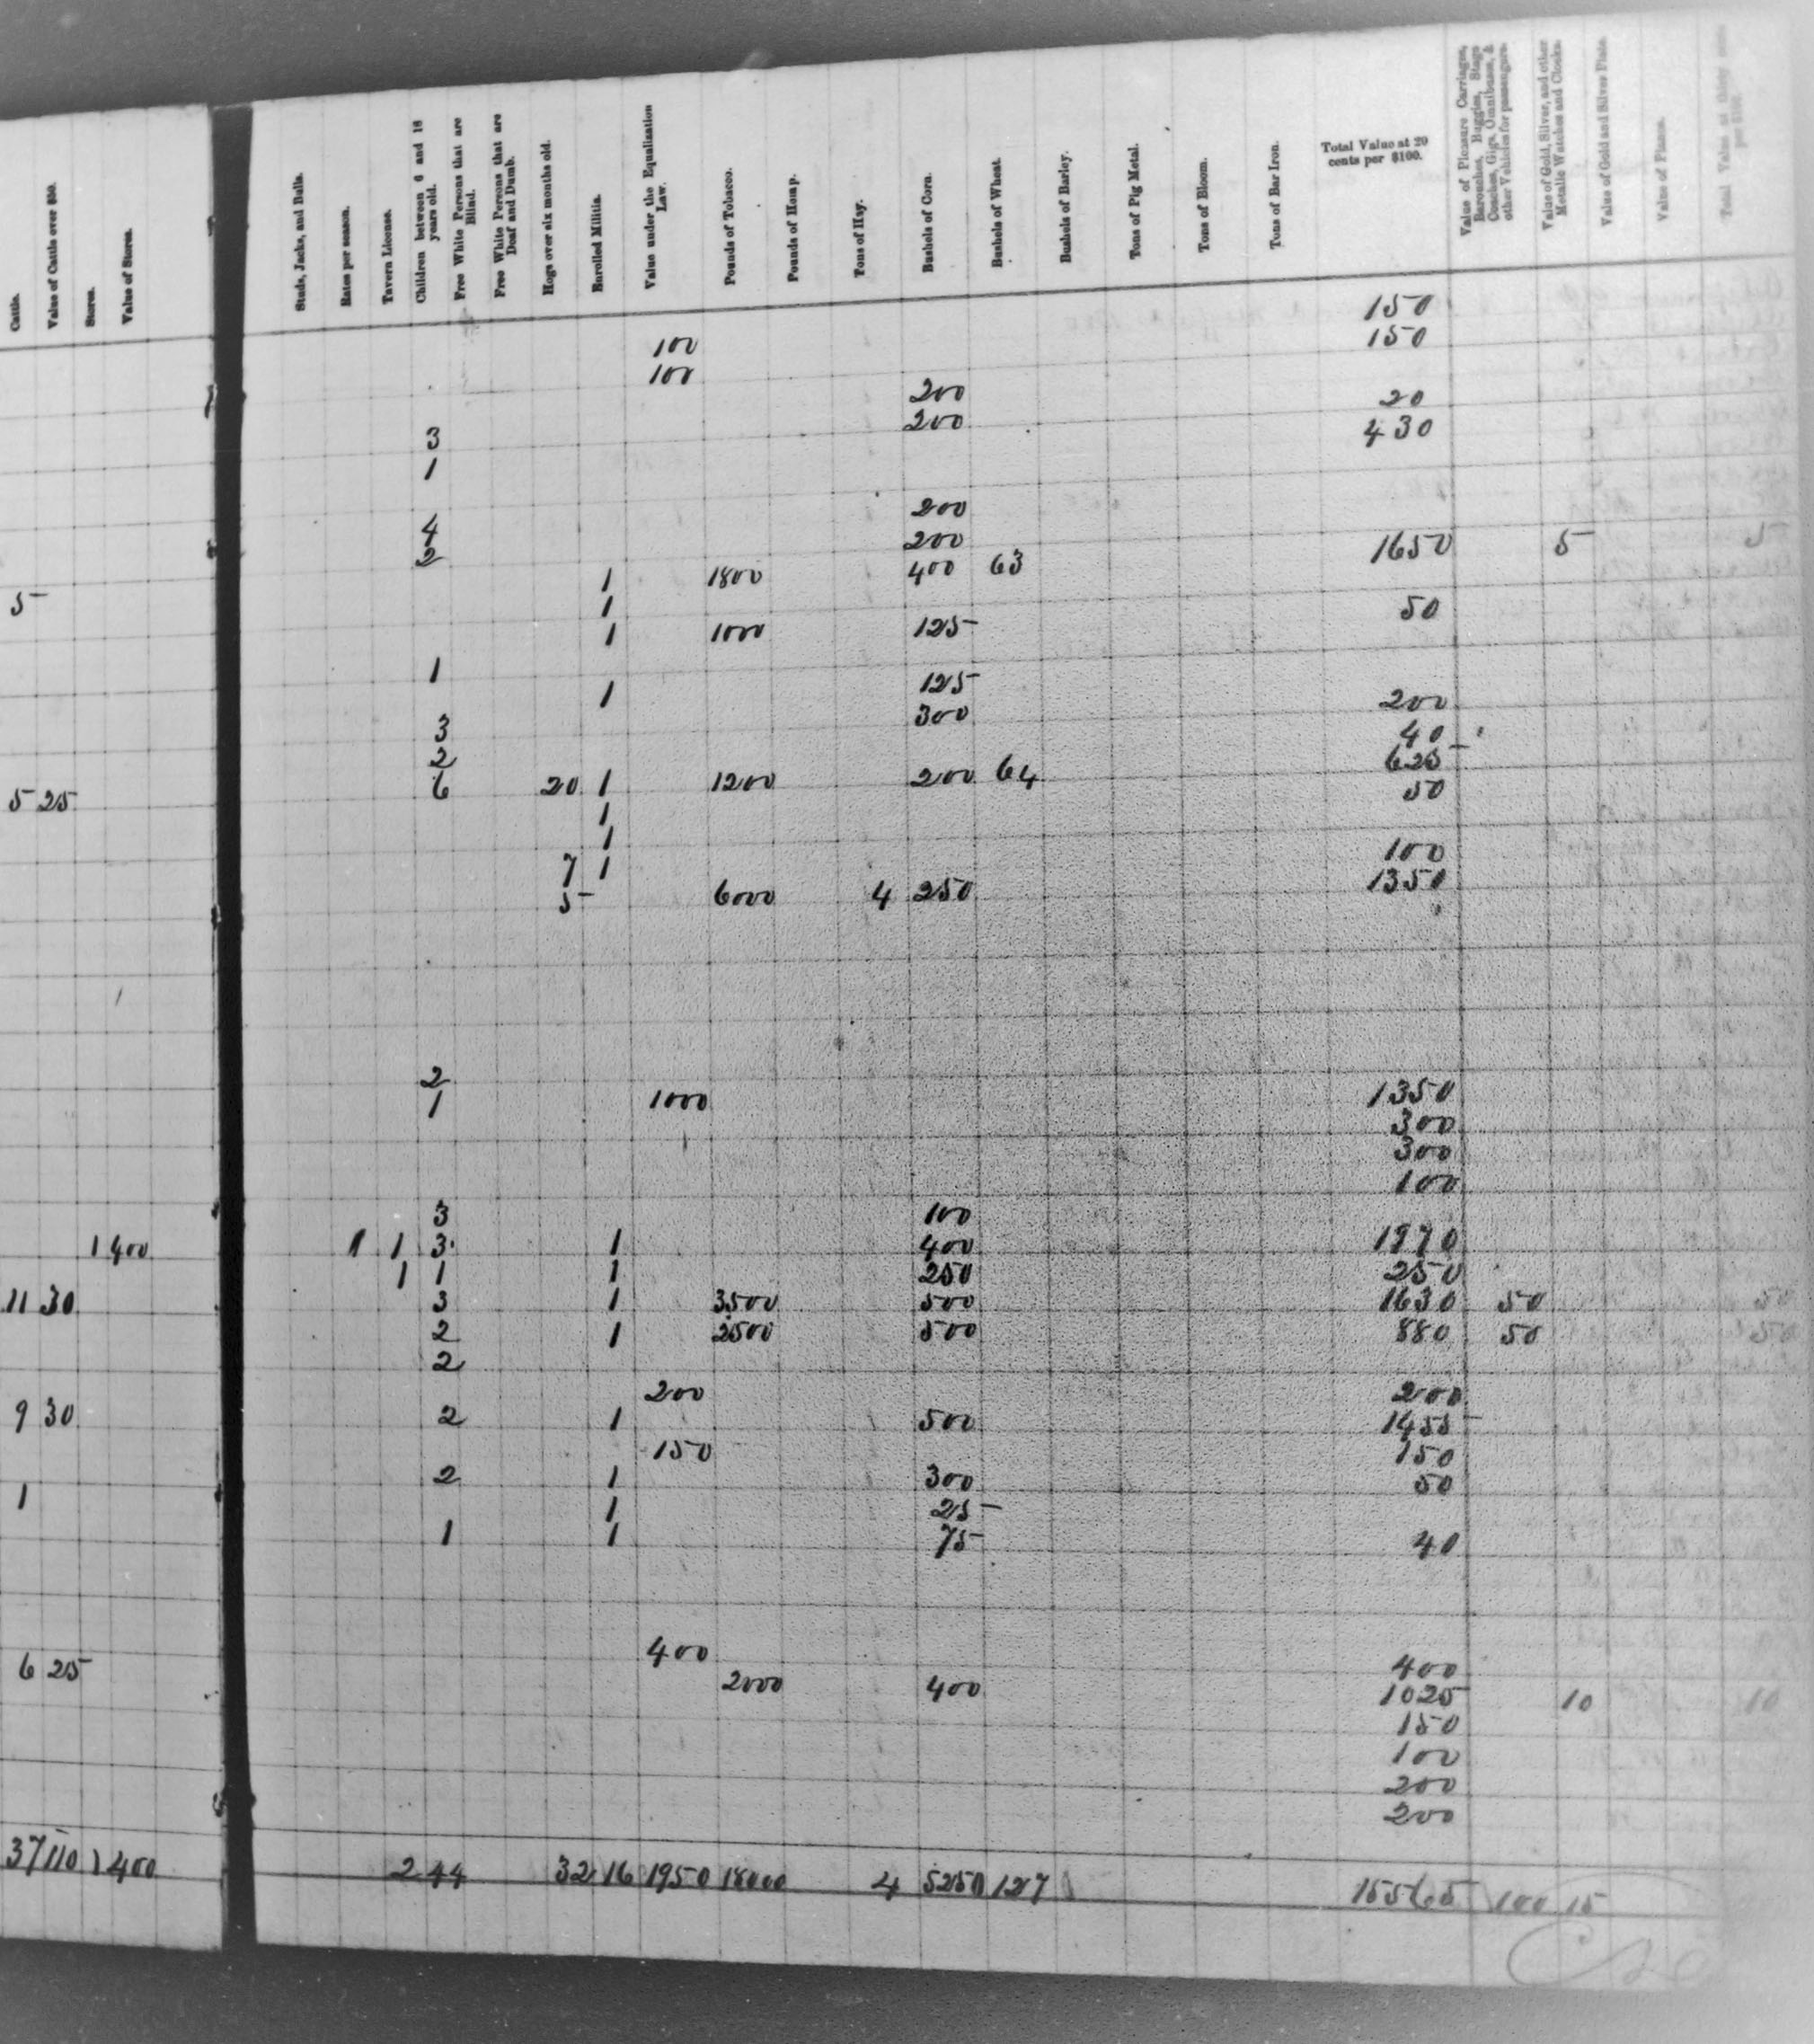 Cattle.
Value of Cattle over $50.
Stores.
Value of Stores.
Studs, Jacks, and Bulls.
Rates per season.
Tavern License.
Children between 6 and 16 years old.
Free White Persons that are Blind.
Free White Persons that are Deaf and Dumb.
Hogs over six months old.
Enrolled Militia.
Value under the Equalization Law.
Pounds of Tobacco.
Pounds of Hemp.
Tons of Hay.
Bushels of Corn.
Bushels of Wheat.
Bushels of Barley.
Tons of Pig Metal.
Tons of Bloom.
Tons of Bar Iron.
Total Value at 20 cents per $100.
Value of Pleasure Carriages, Barouches, Buggies, Stage Coaches, Gigs, Omnibusses, & other Vehicles for passengers.
Value of Gold, Silver, and other Metalic Watches and Clocks.
Value of Gold and Silver Plate.
Value of Pianos.
Total Value at thirty cents per $100.
150
100 150
100
200 20
3 200 430
1
200
4 200
2 1650 5 5
1 1800 400 63
5 1 50
1 1000 125
1
1 125 200
3 300 40
2 625
5 25 6 20 1 1200 200 64 50
1
1 100
7 1 1350
5 6000 4 250
2 1350
1 1000 300
300
100
3 100
1 400 1 1 3 1 400 1970
1 1 1 250 250
11 30 3 1 3500 500 1630 50 50
2 1 2500 500 880 50 50
2
200 200
9 30 2 1 500 1455
150 150
2 1 300 50
1 1 25
1 1 75 40
400 400
6 25 2000 400 1025 10 10
150
100
200
200
37 110 1 400 2 44 32 16 1950 18000 4 5250 127 15565 100 15